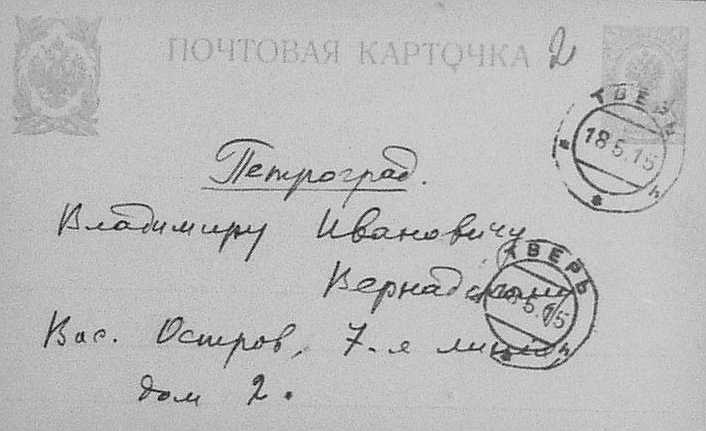 ПОЧТОВАЯ КАРТОЧКА 2
ТВЕРЬ
18.5.15
Петроград.
Владимиру Ивановичу
ТВЕРЬ
Вернадскому
18.5.15
Вас. Остров, 7-я линия,
дом 2.